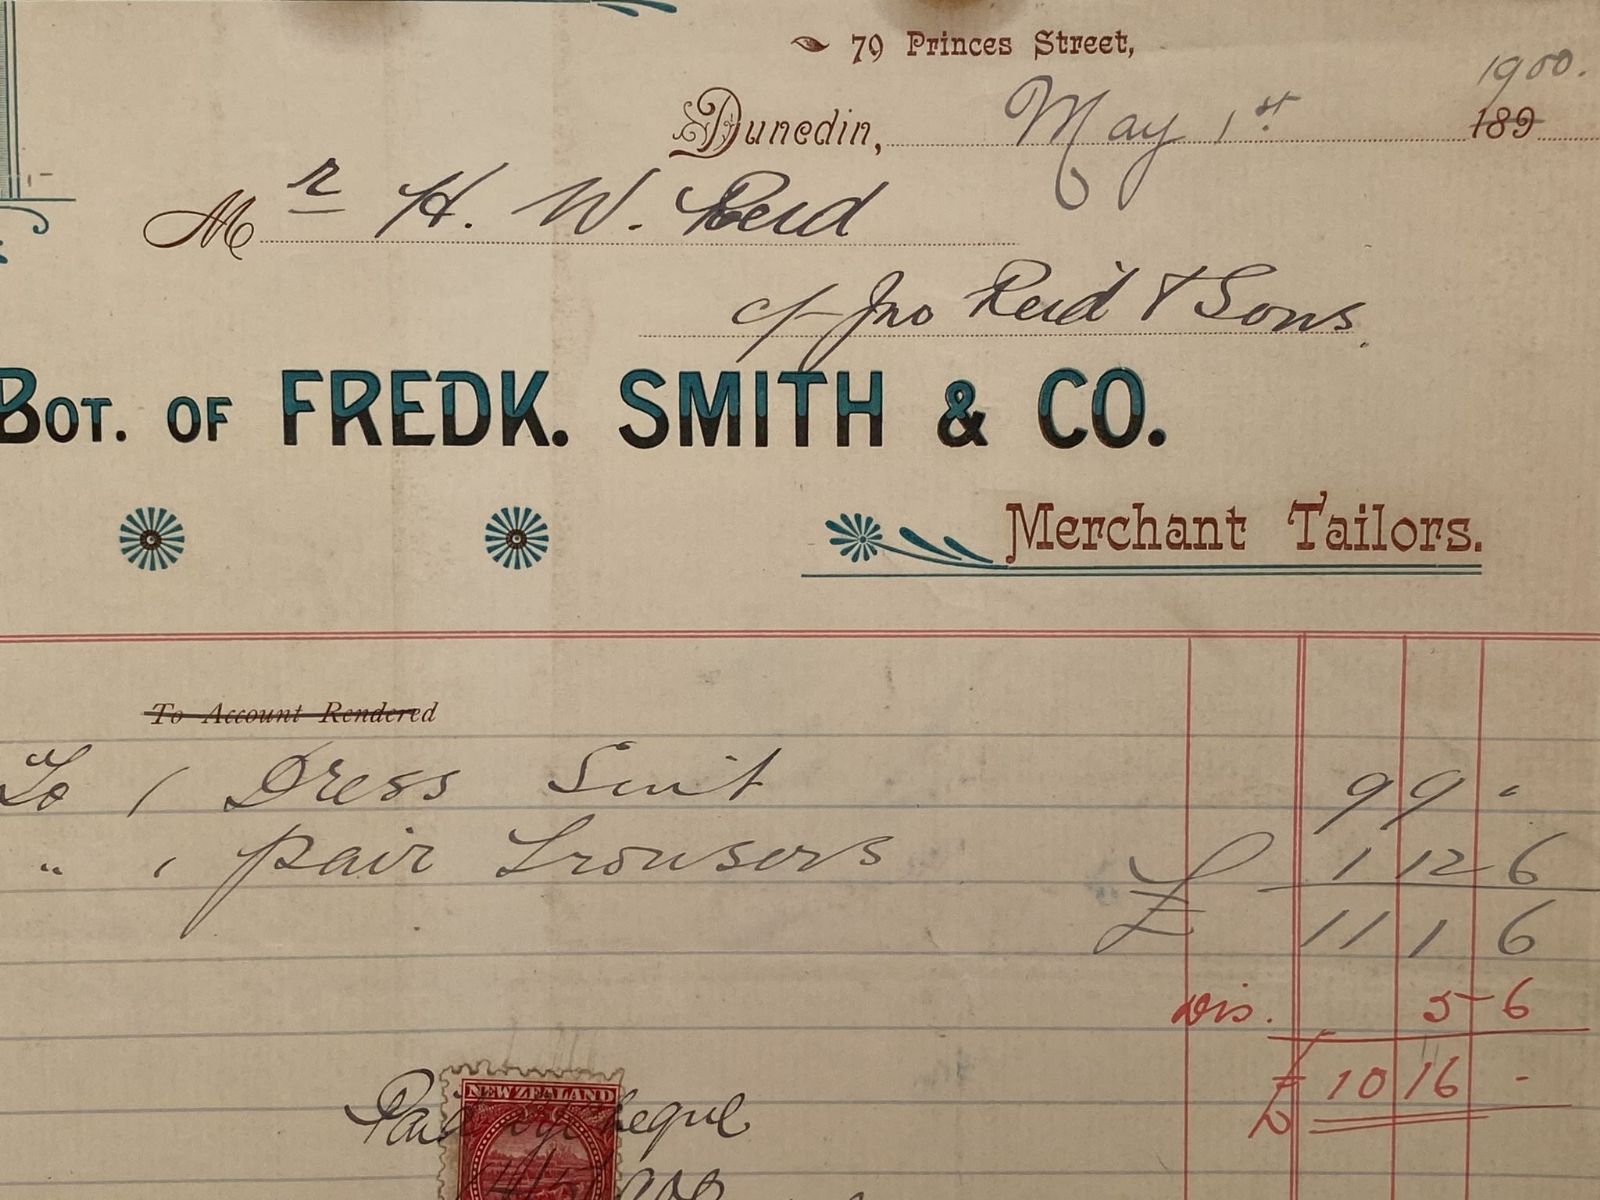 79 Princes Street,
Dunedin, May 1st. 189 1900.
Mr H. W. Reid
c/- Jno Reid & Sons.
BOT. OF FREDK. SMITH & CO.
Merchant Tailors.
To Account Rendered
To 1 Dress Suit 9 9 -
" 1 pair Trousers 1 12 6
£ 11 1 6
Dis. 5 6
£ 10 16 -
NEW ZEALAND
Paid